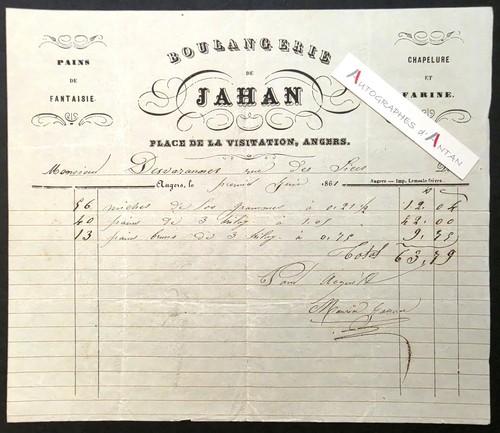 BOULANGERIE
DE
JAHAN
PLACE DE LA VISITATION, ANGERS.
PAINS
DE
FANTAISIE.
CHAPELURE
ET
FARINE.
AUTOGRAPHES d'ANTAN
Monsieur Desvarannes rue des Lices Dt
Angers, le premier 186 Angers — Imp. Lemesle frères.
56 miches de 500 grammes à 0.21 ½ 12.04
40 pains de 3 kilog à 1.05 42.00
13 pains bruns de 3 kilog à 0.75 9.75
Total 63,79
Pour Acquit